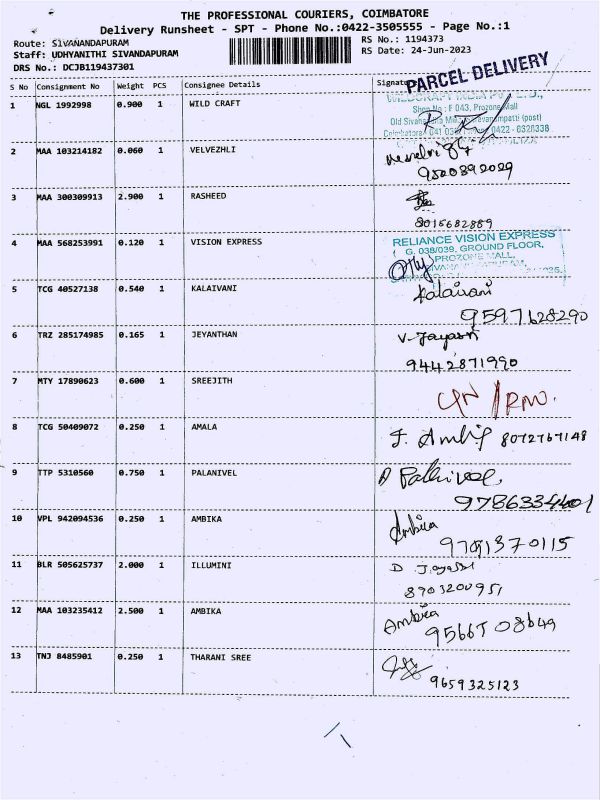 THE PROFESSIONAL COURIERS, COIMBATORE
Delivery Runsheet - SPT - Phone No.:0422-3505555 - Page No.:1
Route: SIVANANDAPURAM
RS No.: 1194373
Staff: UDHYANITHI SIVANDAPURAM
RS Date: 24-Jun-2023
DRS No.: DCJB119437301
PARCEL DELIVERY
S No Consignment No Weight PCS Consignee Details
1 NGL 1992998 0.900 1 WILD CRAFT
2 MAA 103214182 0.060 1 VELVEZHLI
9500892029
3 MAA 300309913 2.900 1 RASHEED
8015682889
4 MAA 568253991 0.120 1 VISION EXPRESS
RELIANCE VISION EXPRESS
G. 038/039, GROUND FLOOR,
PROZONE MALL,
5 TCG 40527138 0.540 1 KALAIVANI Kalaivani
9597628290
6 TRZ 285174985 0.165 1 JEYANTHAN
9442871990
7 MTY 17890623 0.600 1 SREEJITH
8 TCG 50409072 0.250 1 AMALA
8072767148
9 TTP 5310560 0.750 1 PALANIVEL
9786334601
10 VPL 942094536 0.250 1 AMBIKA Ambica
9791370115
11 BLR 505625737 2.000 1 ILLUMINI
8903200951
12 MAA 103235412 2.500 1 AMBIKA Ambica
9566708649
13 TNJ 8485901 0.250 1 THARANI SREE
9659325123